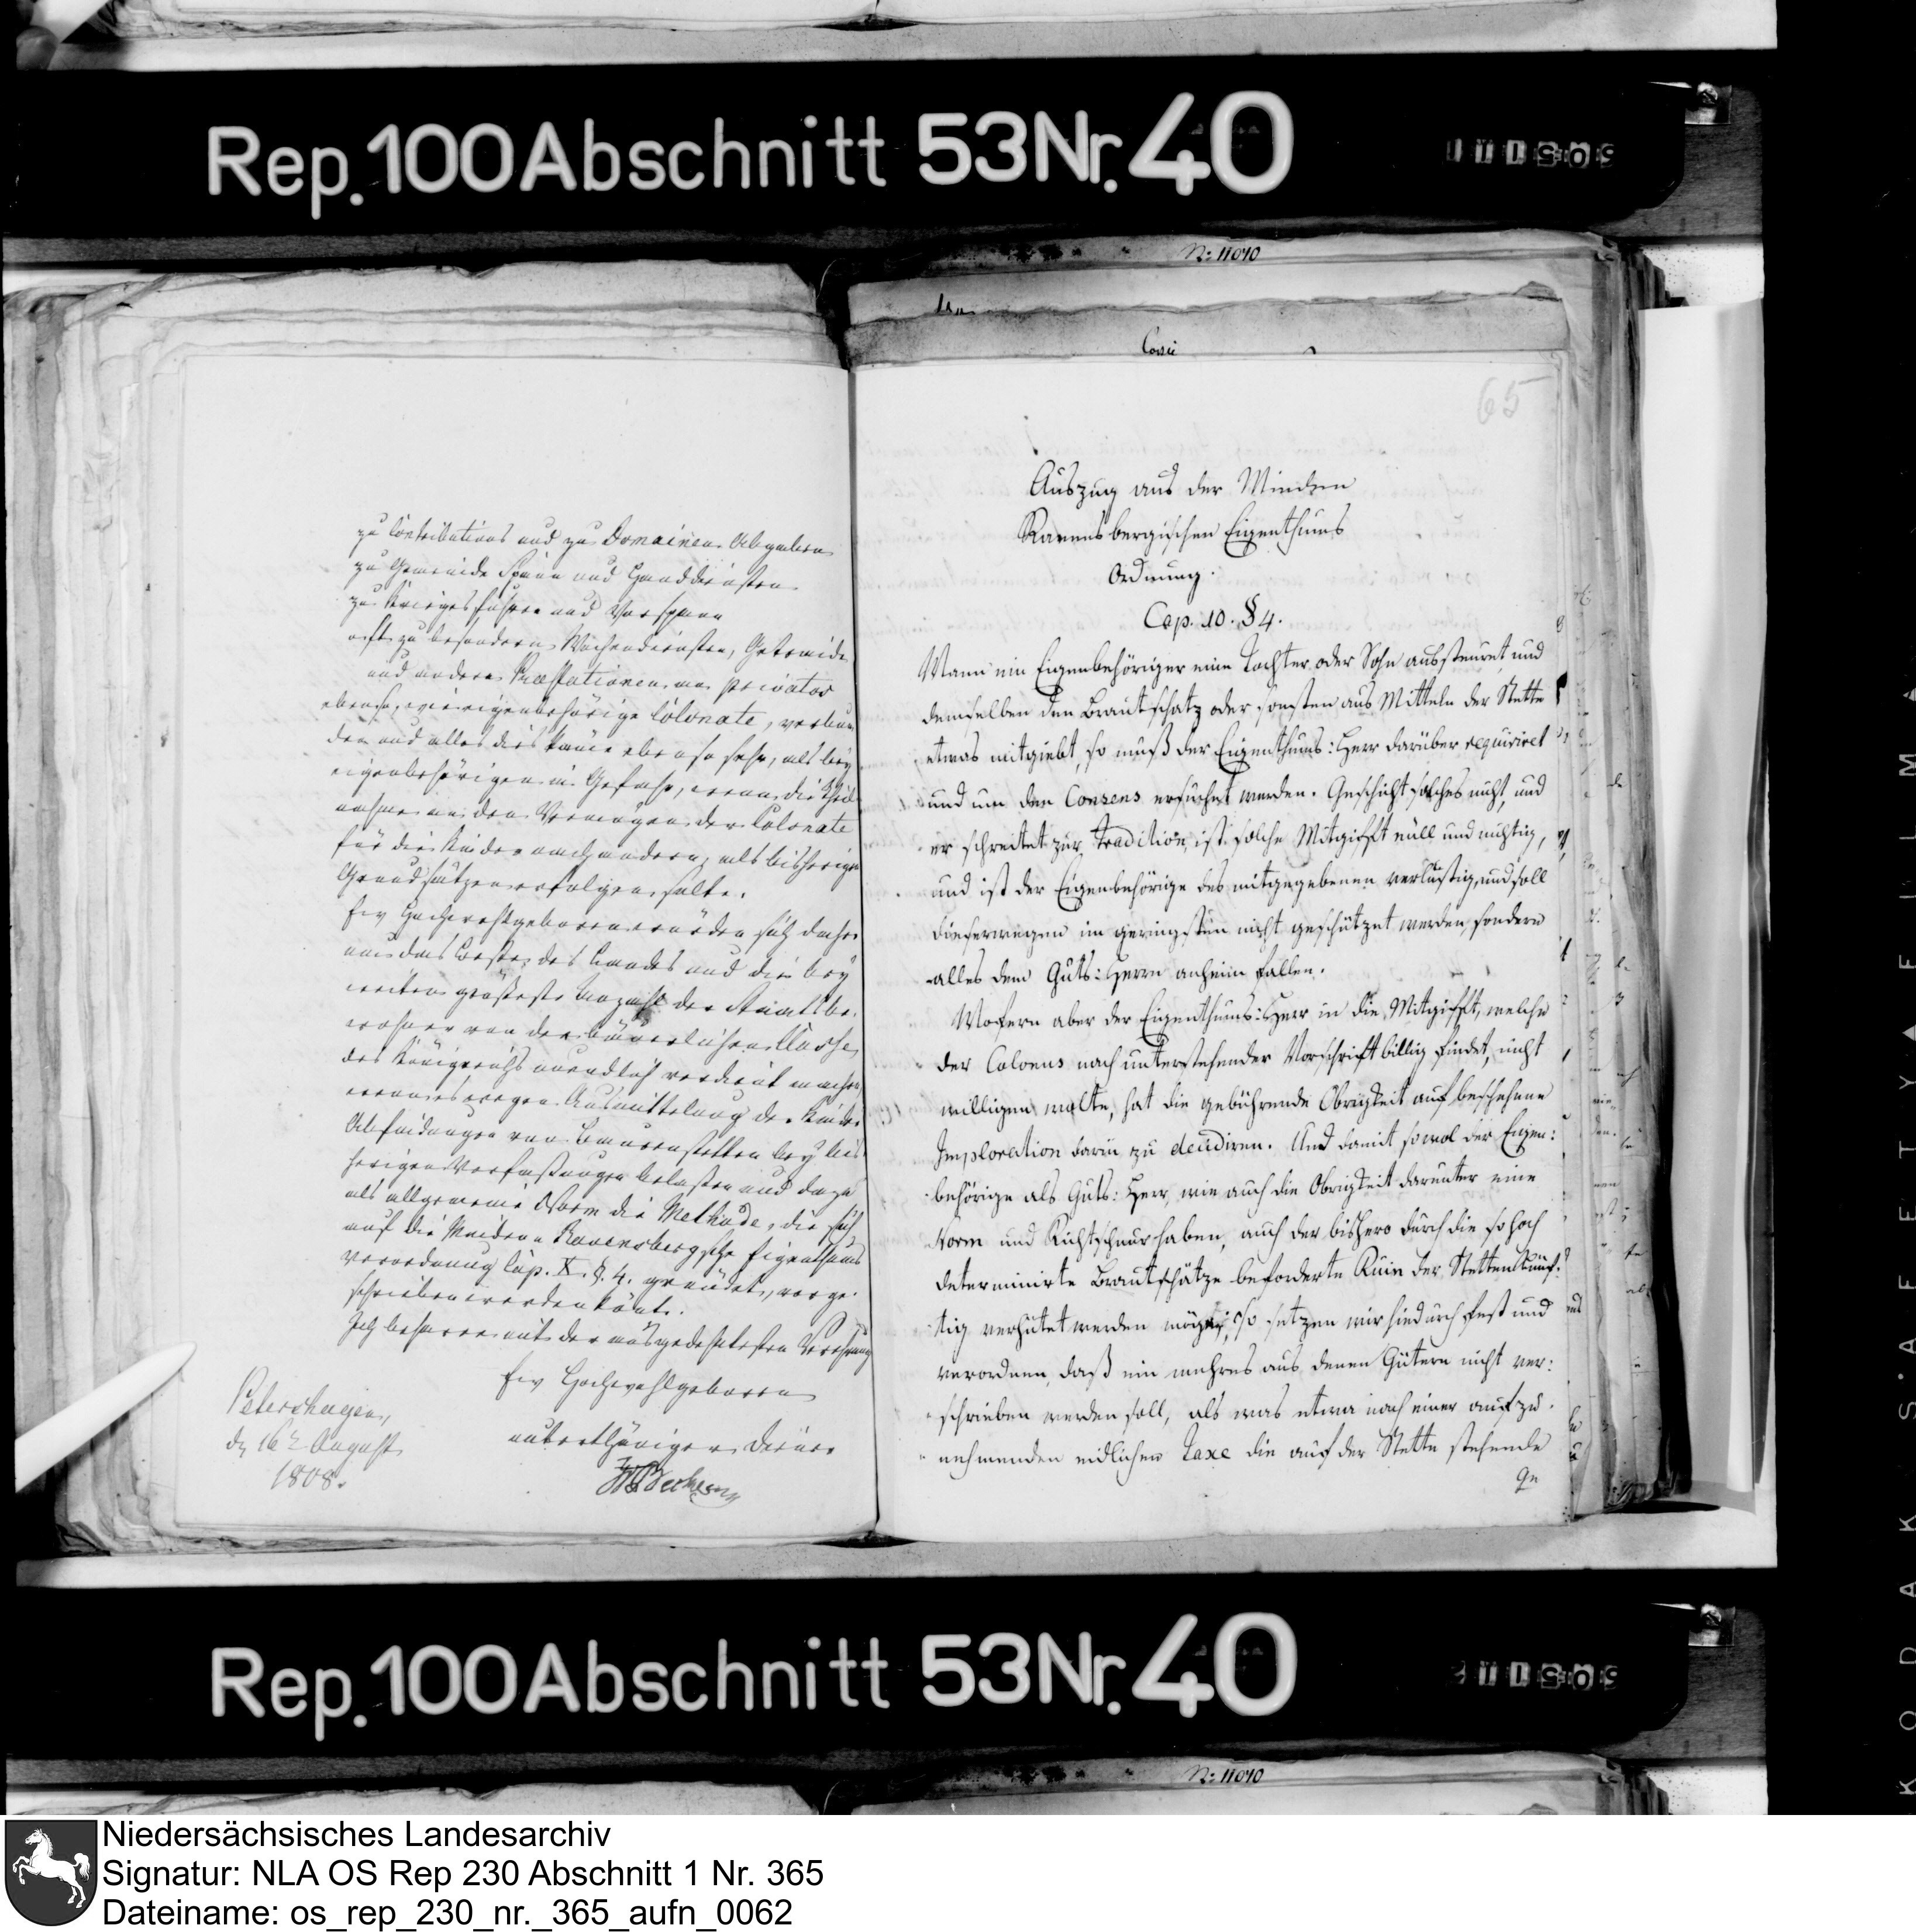 Rep. 100 Abschnitt 53 Nr. 40
N: 11040
65
zu Contributions und zu Domainen Abgaben
zu Gemeinde Spann und Handdiensten
zu Kriegesfuhren und Vorspann
oft zu besondern Wochendiensten, Getraide
und andern Praestationen an privatos
ebenso, wie eigenbehörige Colonate, verbun
den und alles dies käme ebenso sehr, als bey
eigenbehörigen in Gefahr, wenn die Theil
nahme an den Vermögen der Colonate
für die Kinder nach andern, als bisherigen
Grundsätzen erfolgen solte.
Ew Hochwohlgeboren würden sich daher
um das Beste des Landes und die bey
weiten größeste Anzahl der Staatsbe,
wohner von der bäuerlichen Classe
des Königreichs unendlich verdient machen,
wenn es wegen Ausmittelung der Kinder
Abfindungen von Bauernstetten bey bis
herigen Verfaßungen belaßen und dazu
als allgemeine Norm die Methode, die sich
auf die Minden Ravensbergsche Eigenthums
verordnung Cap. X. §. 4. gründet, vorge
schrieben werden könte.
Ich beharre mit der ausgedehntesten Verehrung
Ew Hochwohlgeboren
unterthäniger Diener
Petershagen,
d 16t August
1808.
Auszug aus der Minden
Ravensbergischen Eigenthums
Ordnung.
Cap. 10. § 4.
Wann ein Eigenbehöriger eine Tochter oder Sohn aussteuret, und
demselben den Brautschatz oder sonsten aus Mitteln der Stette
etwas mitgiebt, so muß der Eigenthums: Herr darüber requiriret
und um den Consens ersuchet werden. Geschicht solches nicht, und
er schreitet zur Tradition, ist solche Mitgifft null und nichtig,
und ist der Eigenbehörige des mitgegebenen verlustig, und soll
dieserwegen im geringsten nicht geschützet werden, sondern
alles dem Guts: Herrn anheim fallen.
Wofern aber der Eigenthums: Herr in die Mitgifft, welche
der Colonus nach unterstehender Vorschrift billig findet, nicht
willigen wolte, hat die gebührende Obrigkeit auf beschehene
Imploration darin zu decidiren. Und damit sowol der Eigen:
behörige als Guts: Herr, wie auch die Obrigkeit darunter eine
Norm und Richtschnur haben, auch der bishero durch die so hoch
determinirte Brautschätze beforderte Ruin der Stetten künf:
tig verhütet werden möge, So setzen wir hiedurch fest und
verordnen, daß ein mehres aus denen Gütern nicht ver:
schrieben werden soll, als was etwa nach einer aufzu
nehmenden eidlichen Taxe die auf der Stette stehende
ge
Rep. 100 Abschnitt 53 Nr. 40
N: 11040
KODAK S·AFETY
Niedersächsisches Landesarchiv
Signatur: NLA OS Rep 230 Abschnitt 1 Nr. 365
Dateiname: os_rep_230_nr._365_aufn_0062